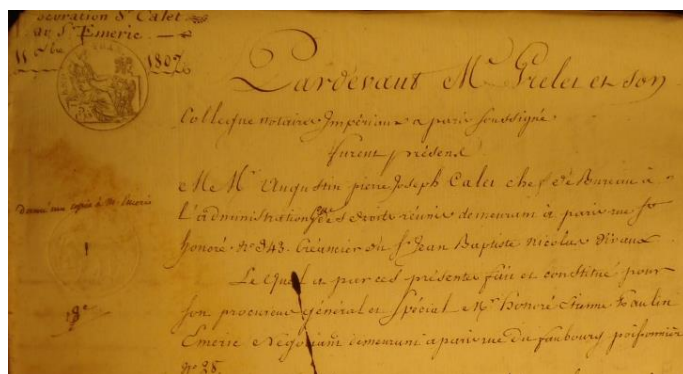 ocuration Sr Calet
au Sr Emeric
11 8bre 1807
Pardevant Mr Grelet et son
Collegue notaires Impériaux a paris soussigné
furent présens
Mr Augustin pierre Joseph Calet chef de Bureau à
L'administration des droits réunis demeurant à paris rue St
honoré No 343. Créancier du Sr Jean Baptiste Nicolas
donné une copie à Mr Emeric
Lequel a par ces présente fait et constitué pour
son procureur général et Spécial Mr honoré Paulin
Emeric Négociant demeurant à paris rue du faubourg poissonnière
No 28.